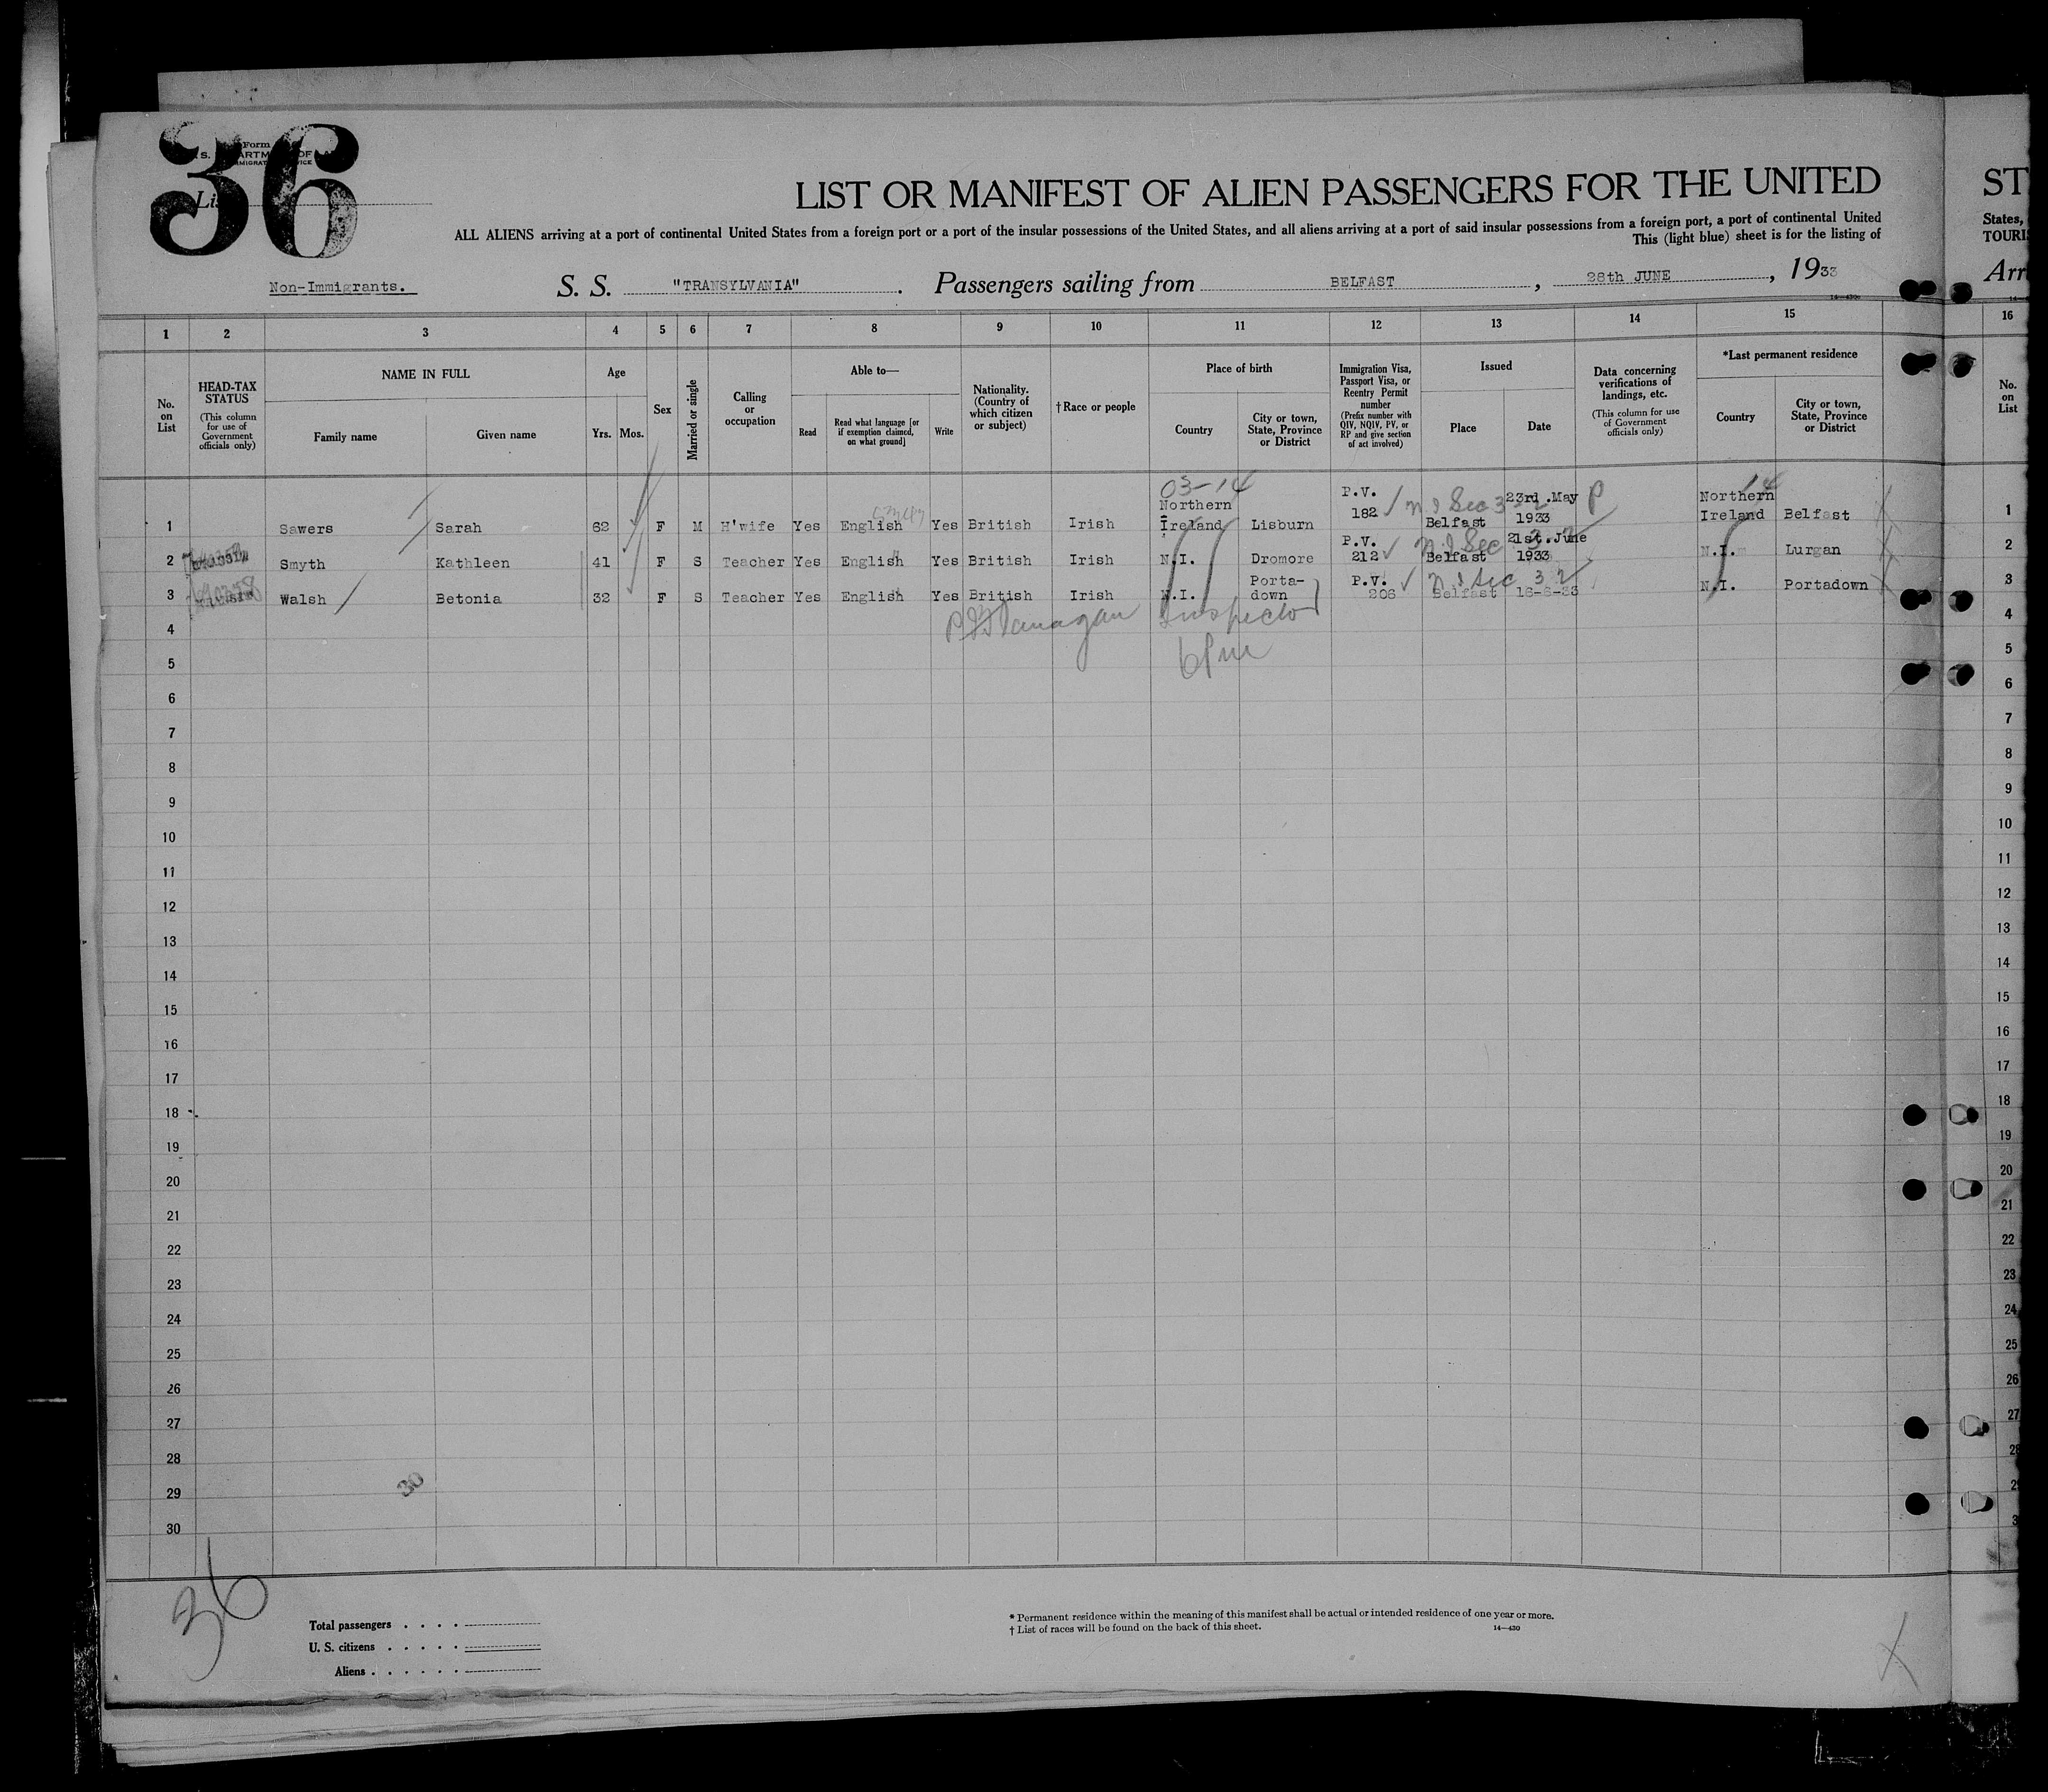 36
Form
List
LIST OR MANIFEST OF ALIEN PASSENGERS FOR THE UNITED
ST
ALL ALIENS arriving at a port of continental United States from a foreign port or a port of the insular possessions of the United States, and all aliens arriving at a port of said insular possessions from a foreign port, a port of continental United
States,
This (light blue) sheet is for the listing of
TOURIS
Non-Immigrants. S. S. "TRANSYLVANIA". Passengers sailing from BELFAST, 28th JUNE, 1933
Arr
14—430
1 2 3 4 5 6 7 8 9 10 11 12 13 14 15 16
No. on List
HEAD-TAX STATUS
(This column for use of Government officials only)
NAME IN FULL
Family name Given name
Age
Yrs. Mos.
Sex
Married or single
Calling or occupation
Able to—
Read
Read what language [or if exemption claimed, on what ground]
Write
Nationality. (Country of which citizen or subject)
†Race or people
Place of birth
Country
City or town, State, Province or District
Immigration Visa, Passport Visa, or Reentry Permit number
(Prefix number with QIV, NQIV, PV, or RP and give section of act involved)
Issued
Place Date
Data concerning verifications of landings, etc.
(This column for use of Government officials only)
*Last permanent residence
Country
City or town, State, Province or District
No. on List
03-14 14
1 Sawers Sarah 62 F M H'wife Yes English Yes British Irish Northern Ireland Lisburn P.V. 182 Belfast 23rd.May 1933 P Northern Ireland Belfast 1
N I Sec 3 2
2 Smyth Kathleen 41 F S Teacher Yes English Yes British Irish N.I. Dromore P.V. 212 Belfast 21st.June 1933 N.I. Lurgan 2
N I Sec 3 2
3 Walsh Betonia 32 F S Teacher Yes English Yes British Irish N.I. Porta-down P.V. 206 Belfast 16-6-33 N.I. Portadown 3
N I Sec 3 2
Flanagan Inspector
6 PM
4 4
5 5
6 6
7 7
8 8
9 9
10 10
11 11
12 12
13 13
14 14
15 15
16 16
17 17
18 18
19 19
20 20
21 21
22 22
23 23
24 24
25 25
26 26
27 27
28 28
29 30 29
30 3
36
Total passengers . . . .
U. S. citizens . . . . .
Aliens . . . . . .
* Permanent residence within the meaning of this manifest shall be actual or intended residence of one year or more.
† List of races will be found on the back of this sheet. 14—430
X